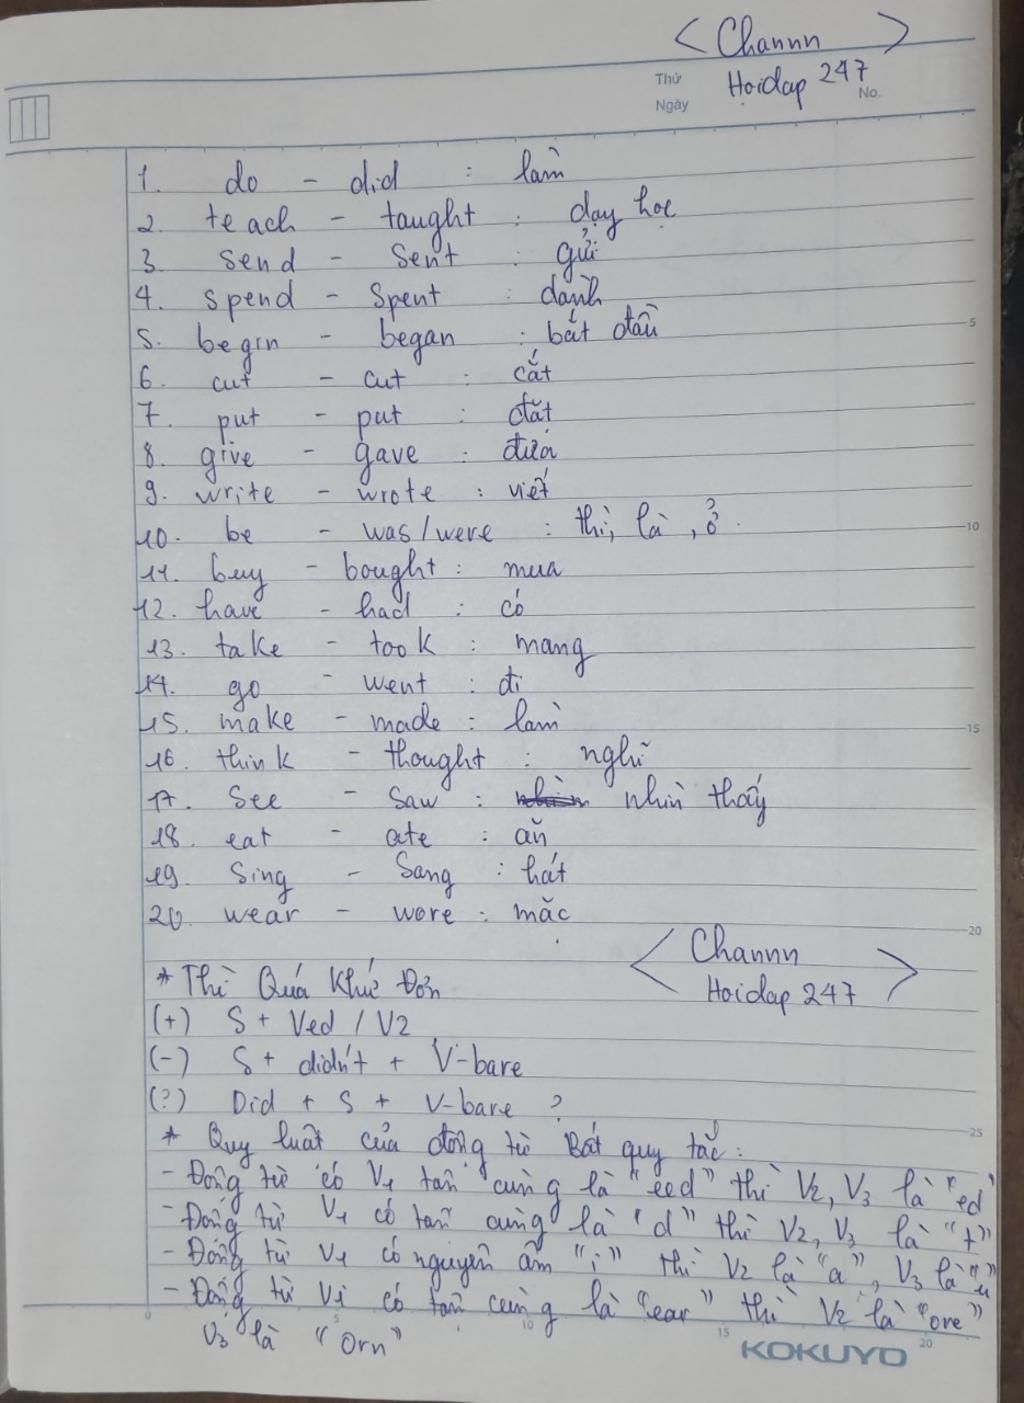 < Channn >
Thứ
Hoidap 247
Ngày
No.
1. do - did : làm
2. teach - taught : dạy học
3. send - sent : gửi
4. spend - spent : dành
5. begin - began : bắt đầu
5
6. cut - cut : cắt
7. put - put : đặt
8. give - gave : đưa
9. write - wrote : viết
10. be - was/were : thì, là, ở
10
11. buy - bought : mua
12. have - had : có
13. take - took : mang
14. go - went : đi
15. make - made : làm
15
16. think - thought : nghĩ
17. see - saw : nhìn thấy
18. eat - ate : ăn
19. sing - sang : hát
20. wear - wore : mặc
20
< Channn
Hoidap 247 >
* Thì Quá Khứ Đơn
(+) S + Ved / V2
(-) S + didn't + V-bare
(?) Did + S + V-bare ?
25
* Quy luật của động từ Bất quy tắc :
- Động từ có V1 tận cùng là "eed" thì V2, V3 là "ed"
- Động từ V1 có tận cùng là "d" thì V2, V3 là "t"
- Động từ V1 có nguyên âm "i" thì V2 là "a", V3 là "u"
- Động từ V1 có tận cùng là "ear" thì V2 là "ore"
V3 là "orn"
0 5 10 15 20
KOKUYO